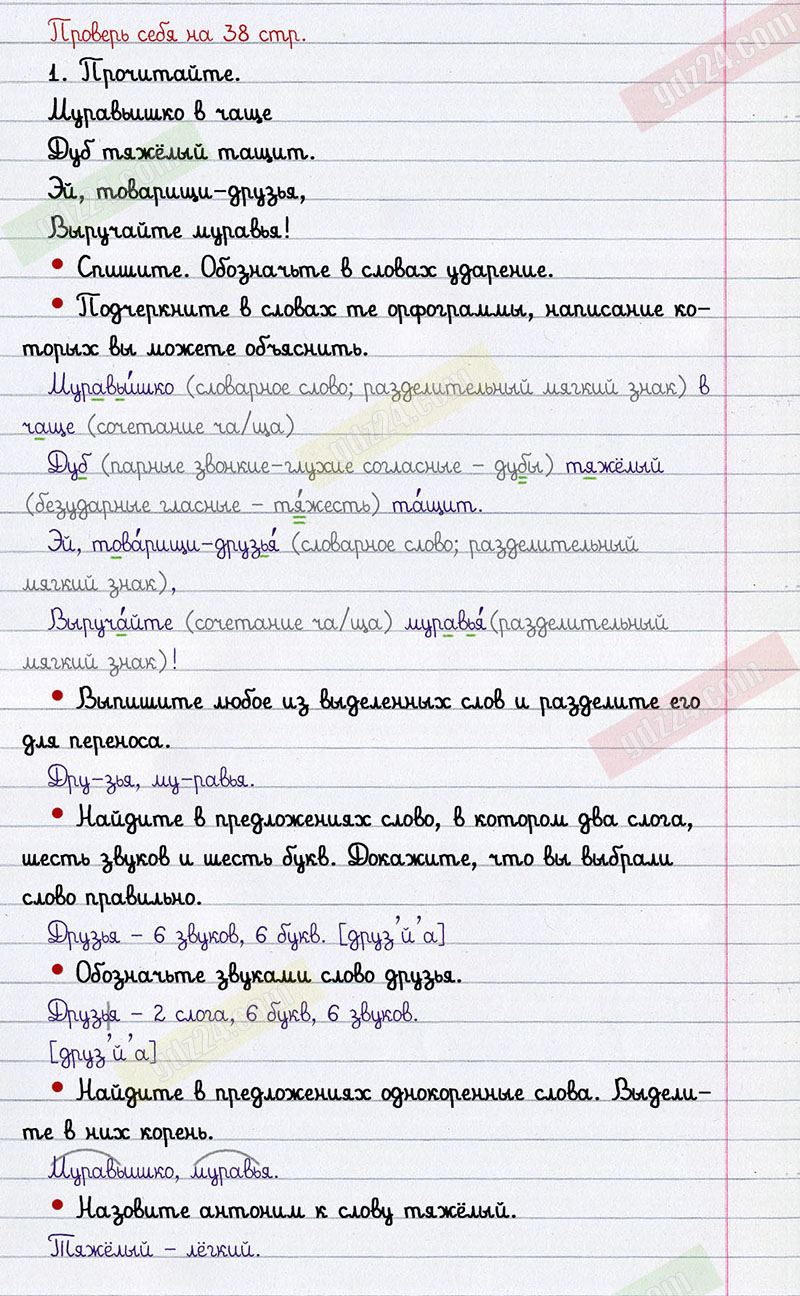 Проверь себя на 38 стр.
1. Прочитайте.
Муравьишко в чаще
Дуб тяжёлый тащит.
Эй, товарищи-друзья,
Выручайте муравья!
• Спишите. Обозначьте в словах ударение.
• Подчеркните в словах те орфограммы, написание ко-
торых вы можете объяснить.
Муравьи́шко (словарное слово; разделительный мягкий знак) в
чаще (сочетание ча/ща)
Дуб (парные звонкие-глухие согласные - дубы) тяжёлый
(безударные гласные - тя́жесть) та́щит.
Эй, това́рищи-друзья́ (словарное слово; разделительный
мягкий знак),
Выруча́йте (сочетание ча/ща) муравья́ (разделительный
мягкий знак)!
• Выпишите любое из выделенных слов и разделите его
для переноса.
Дру-зья, му-равья.
• Найдите в предложениях слово, в котором два слога,
шесть звуков и шесть букв. Докажите, что вы выбрали
слово правильно.
Друзья - 6 звуков, 6 букв. [друз'й'а]
• Обозначьте звуками слово друзья.
Друзья - 2 слога, 6 букв, 6 звуков.
[друз'й'а]
• Найдите в предложениях однокоренные слова. Выдели-
те в них корень.
Муравьишко, муравья.
• Назовите антоним к слову тяжёлый.
Тяжёлый - лёгкий.
gdz24.com
gdz24.com
gdz24.com
gdz24.com
gdz24.com